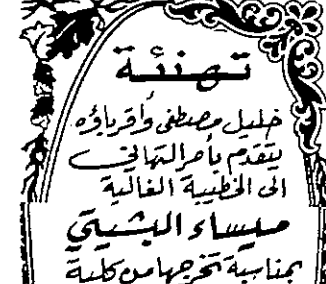 تهنئة
خليل مصطفى وأقرباؤه
يتقدم بأحر التهاني
الى الخطيبة الغالية
ميساء البشيتي
بمناسبة تخرجها من كلية